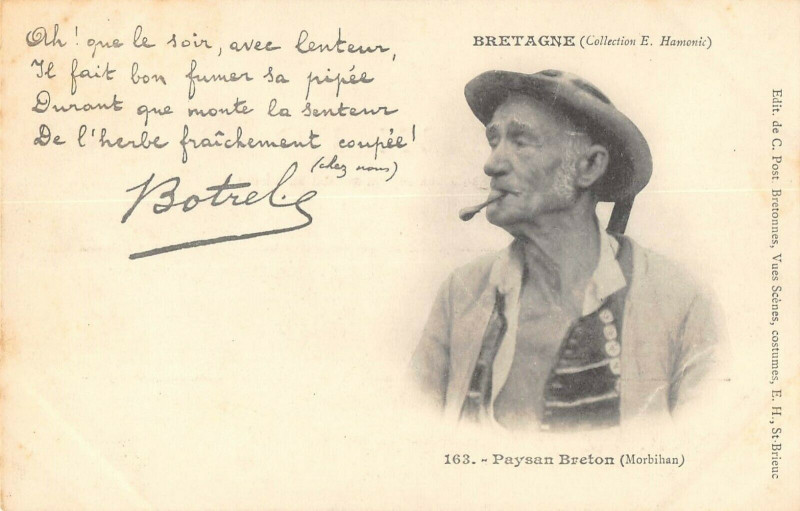 Ah! que le soir, avec lenteur,
Il fait bon fumer sa pipée
Durant que monte la senteur
De l'herbe fraîchement coupée!
(chez nous)
Botrel
BRETAGNE (Collection E. Hamonic)
Edit. de C. Post Bretonnes, Vues Scènes, costumes, E. H., St-Brieuc
163. - Paysan Breton (Morbihan)